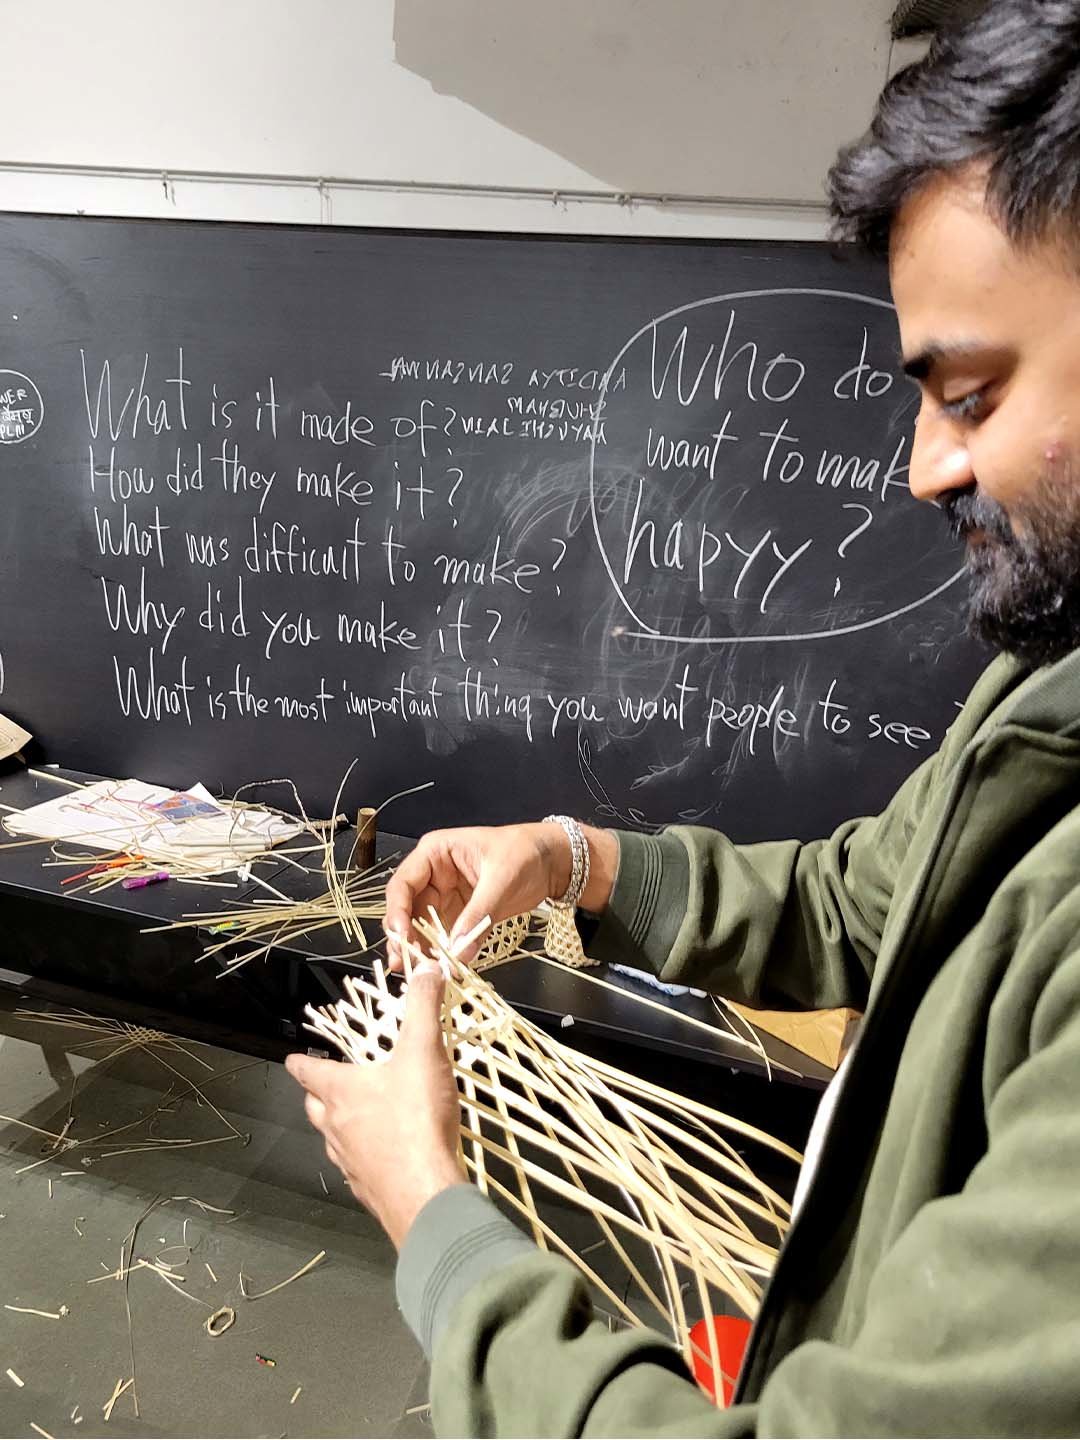 What is it made of?
How did they make it?
What was difficult to make?
Why did you make it?
What is the most important thing you want people to see
AADITYA
SHUBHAM
AAYUSHI JAIN
Who do
want to mak
hapyy?